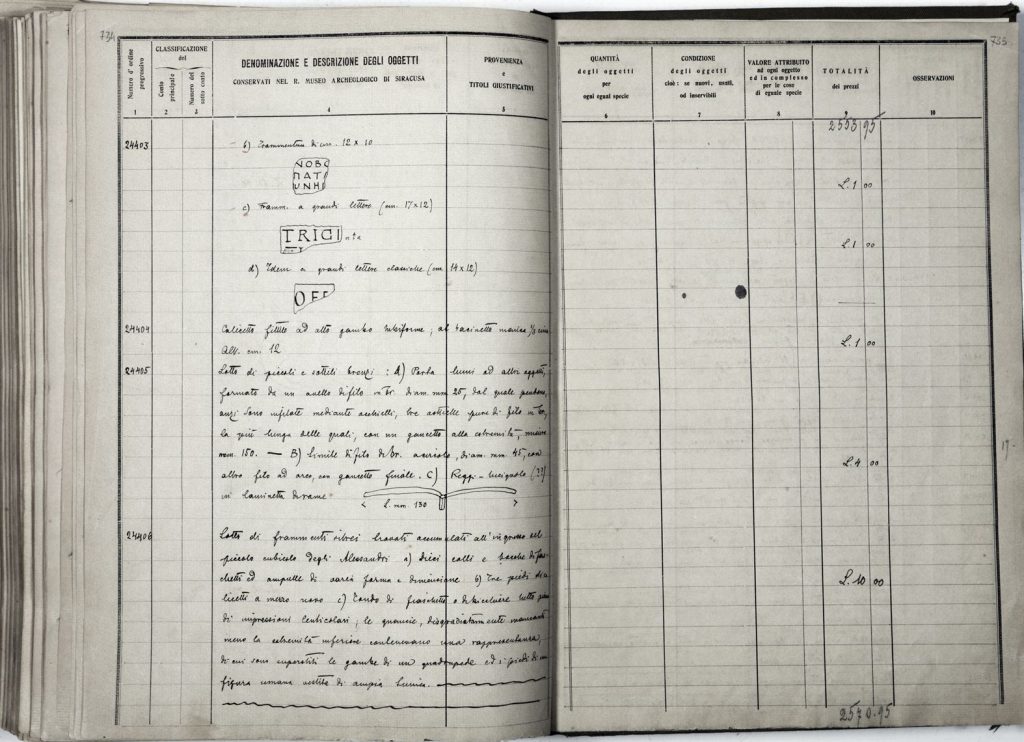 734
Numero d'ordine progressivo
CLASSIFICAZIONE del
Conto principale
Numero del sotto conto
DENOMINAZIONE E DESCRIZIONE DEGLI OGGETTI
CONSERVATI NEL R. MUSEO ARCHEOLOGICO DI SIRACUSA
PROVENIENZA
e
TITOLI GIUSTIFICATIVI
1 2 3 4 5
24403 b) Frammentino di cm. 12 x 10
NOBC
ΠΑΤ
UNHI
c) Framm. a grandi lettere (cm. 17x12)
TRIGI
d) Idem a grandi lettere classiche (cm. 14x12)
OFF
24404 Calicetto fittile ad alto gambo tubiforme; al bacinetto manca
Alt. cm. 12
24405 Lotto di piccoli e sottili bronzi: A) Porta lumi ad altri oggetti,
formato da un anello di filo in br. diam. mm. 25, dal quale pendono,
anzi sono infilate mediante occhielli, tre asticelle pure di filo in br.,
la più lunga delle quali, con un gancetto alla estremità, misura
mm. 150. — B) Simile di filo di br. diam. mm. 45, con
altro filo ad arco, con gancetto finale. C) Reggi-lucignolo (??)
in laminetta di rame
L. mm. 130
24406 Lotto di frammenti vitrei trovati accumulati all'ingresso del
piccolo cubicolo degli Alessandri a) dieci colli e bocche di
ed ampolle di varia forma e dimensione b) Tre piedi di
a mezzo novo c) Fondo di fiaschetta o di bicchiere tutto
di impressioni lenticolari; le guancie, disgraziatamente mancanti
meno la estremità inferiore contenevano una rappresentanza,
di cui sono superstiti le gambe di un quadrupede ed i piedi di
figura umana vestita di ampia tunica.
735
QUANTITÀ
degli oggetti
per
ogni egual specie
CONDIZIONE
degli oggetti
cioè: se nuovi, usati,
od inservibili
VALORE ATTRIBUITO
ad ogni oggetto
ed in complesso
per le cose
di eguale specie
TOTALITÀ
dei prezzi
OSSERVAZIONI
6 7 8 9 10
2553 95
L. 1 00
L. 1 00
L. 1 00
L. 4 00
L. 10 00
2570.95